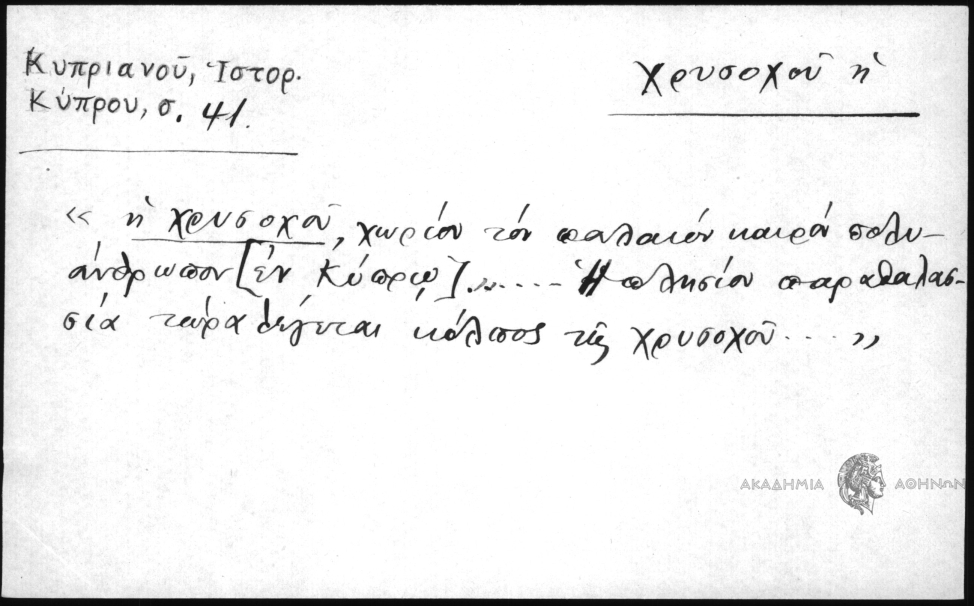 Κυπριανοῦ, Ἱστορ.
Κύπρου, σ. 41.
Χρυσοχοῦ ἡ
« ἡ χρυσοχοῦ, χωρίον τόν παλαιόν καιρόν πολυ-
άνθρωπον [ἐν Κύπρῳ]..... Ἡ πλησίον παραθαλασ-
σία τώρα λέγεται κόλπος τῆς χρυσοχοῦ.... »
ΑΚΑΔΗΜΙΑ ΑΘΗΝΩΝ